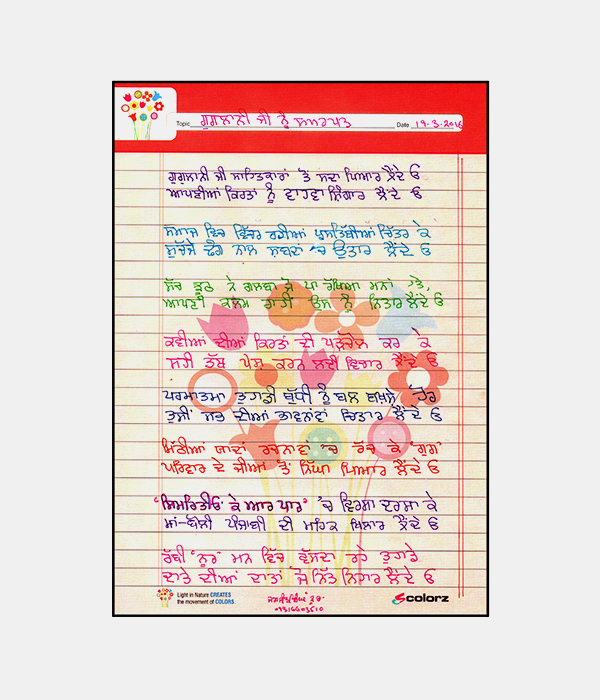 Topic ਗੁਗਲਾਨੀ ਜੀ ਨੂੰ ਸਮਰਪਤ Date 19.3.2016
ਗੁਗਲਾਨੀ ਜੀ ਸਾਹਿਤਕਾਰਾਂ ਤੋਂ ਸਦਾ ਪਿਆਰ ਲੈਂਦੇ ਓ
ਆਪਣੀਆਂ ਕਿਰਤਾਂ ਨੂੰ ਵਾਹਵਾ ਸ਼ਿੰਗਾਰ ਲੈਂਦੇ ਓ
ਸਮਾਜ ਵਿਚ ਵਿੱਚਰ ਰਹੀਆਂ ਪ੍ਰਸਥਿੱਤੀਆਂ ਚਿੱਤਰ ਕੇ
ਸੁਚੱਜੇ ਢੰਗ ਨਾਲ ਸ਼ਬਦਾਂ 'ਚ ਉਤਾਰ ਲੈਂਦੇ ਓ
ਸੱਚ ਝੂਠ ਨੇ ਗਲਬਾ ਜੋ ਪਾ ਰੱਖਿਆ ਮਨਾਂ ਤੇ,
ਆਪਣੀ ਕਲਮ ਰਾਹੀਂ ਉਸ ਨੂੰ ਨਿਤਾਰ ਲੈਂਦੇ ਓ
ਕਵੀਆਂ ਦੀਆਂ ਕਿਰਤਾਂ ਦੀ ਪੜਚੋਲ ਕਰ ਕੇ
ਸਹੀ ਤੱਥ ਪੇਸ਼ ਕਰਨ ਲਈ ਵਿਚਾਰ ਲੈਂਦੇ ਓ
ਪਰਮਾਤਮਾ ਤੁਹਾਡੀ ਬੁੱਧੀ ਨੂੰ ਬਲ ਬਖਸ਼ੇ ਹੋਰ
ਤੁਸੀਂ ਸਭ ਦੀਆਂ ਭਾਵਨਾਵਾਂ ਚਿਤਾਰ ਲੈਂਦੇ ਓ
ਮਿੱਠੀਆਂ ਯਾਦਾਂ ਰਚਨਾਵਾਂ 'ਚ ਰੱਚ ਕੇ 'ਗੁਗ'
ਪਰਿਵਾਰ ਦੇ ਜੀਆਂ ਤੋਂ ਨਿੱਘਾ ਪਿਆਰ ਲੈਂਦੇ ਓ
"ਸਿਮਰਿਤੀਓਂ ਕੇ ਆਰ ਪਾਰ" 'ਚ ਵਿਰਸਾ ਦਰਸਾ ਕੇ
ਮਾਂ-ਬੋਲੀ ਪੰਜਾਬੀ ਦੀ ਮਹਿਕ ਖਿਲਾਰ ਲੈਂਦੇ ਓ
ਰੱਬੀ 'ਨੂਰ' ਮਨ ਵਿੱਚ ਵੱਸਦਾ ਰਹੇ ਤੁਹਾਡੇ
ਦਾਤੇ ਦੀਆਂ ਦਾਤਾਂ ਜੋ ਨਿੱਤ ਨਿਹਾਰ ਲੈਂਦੇ ਓ
Light in Nature CREATES
the movement of COLORS.
Scolorz